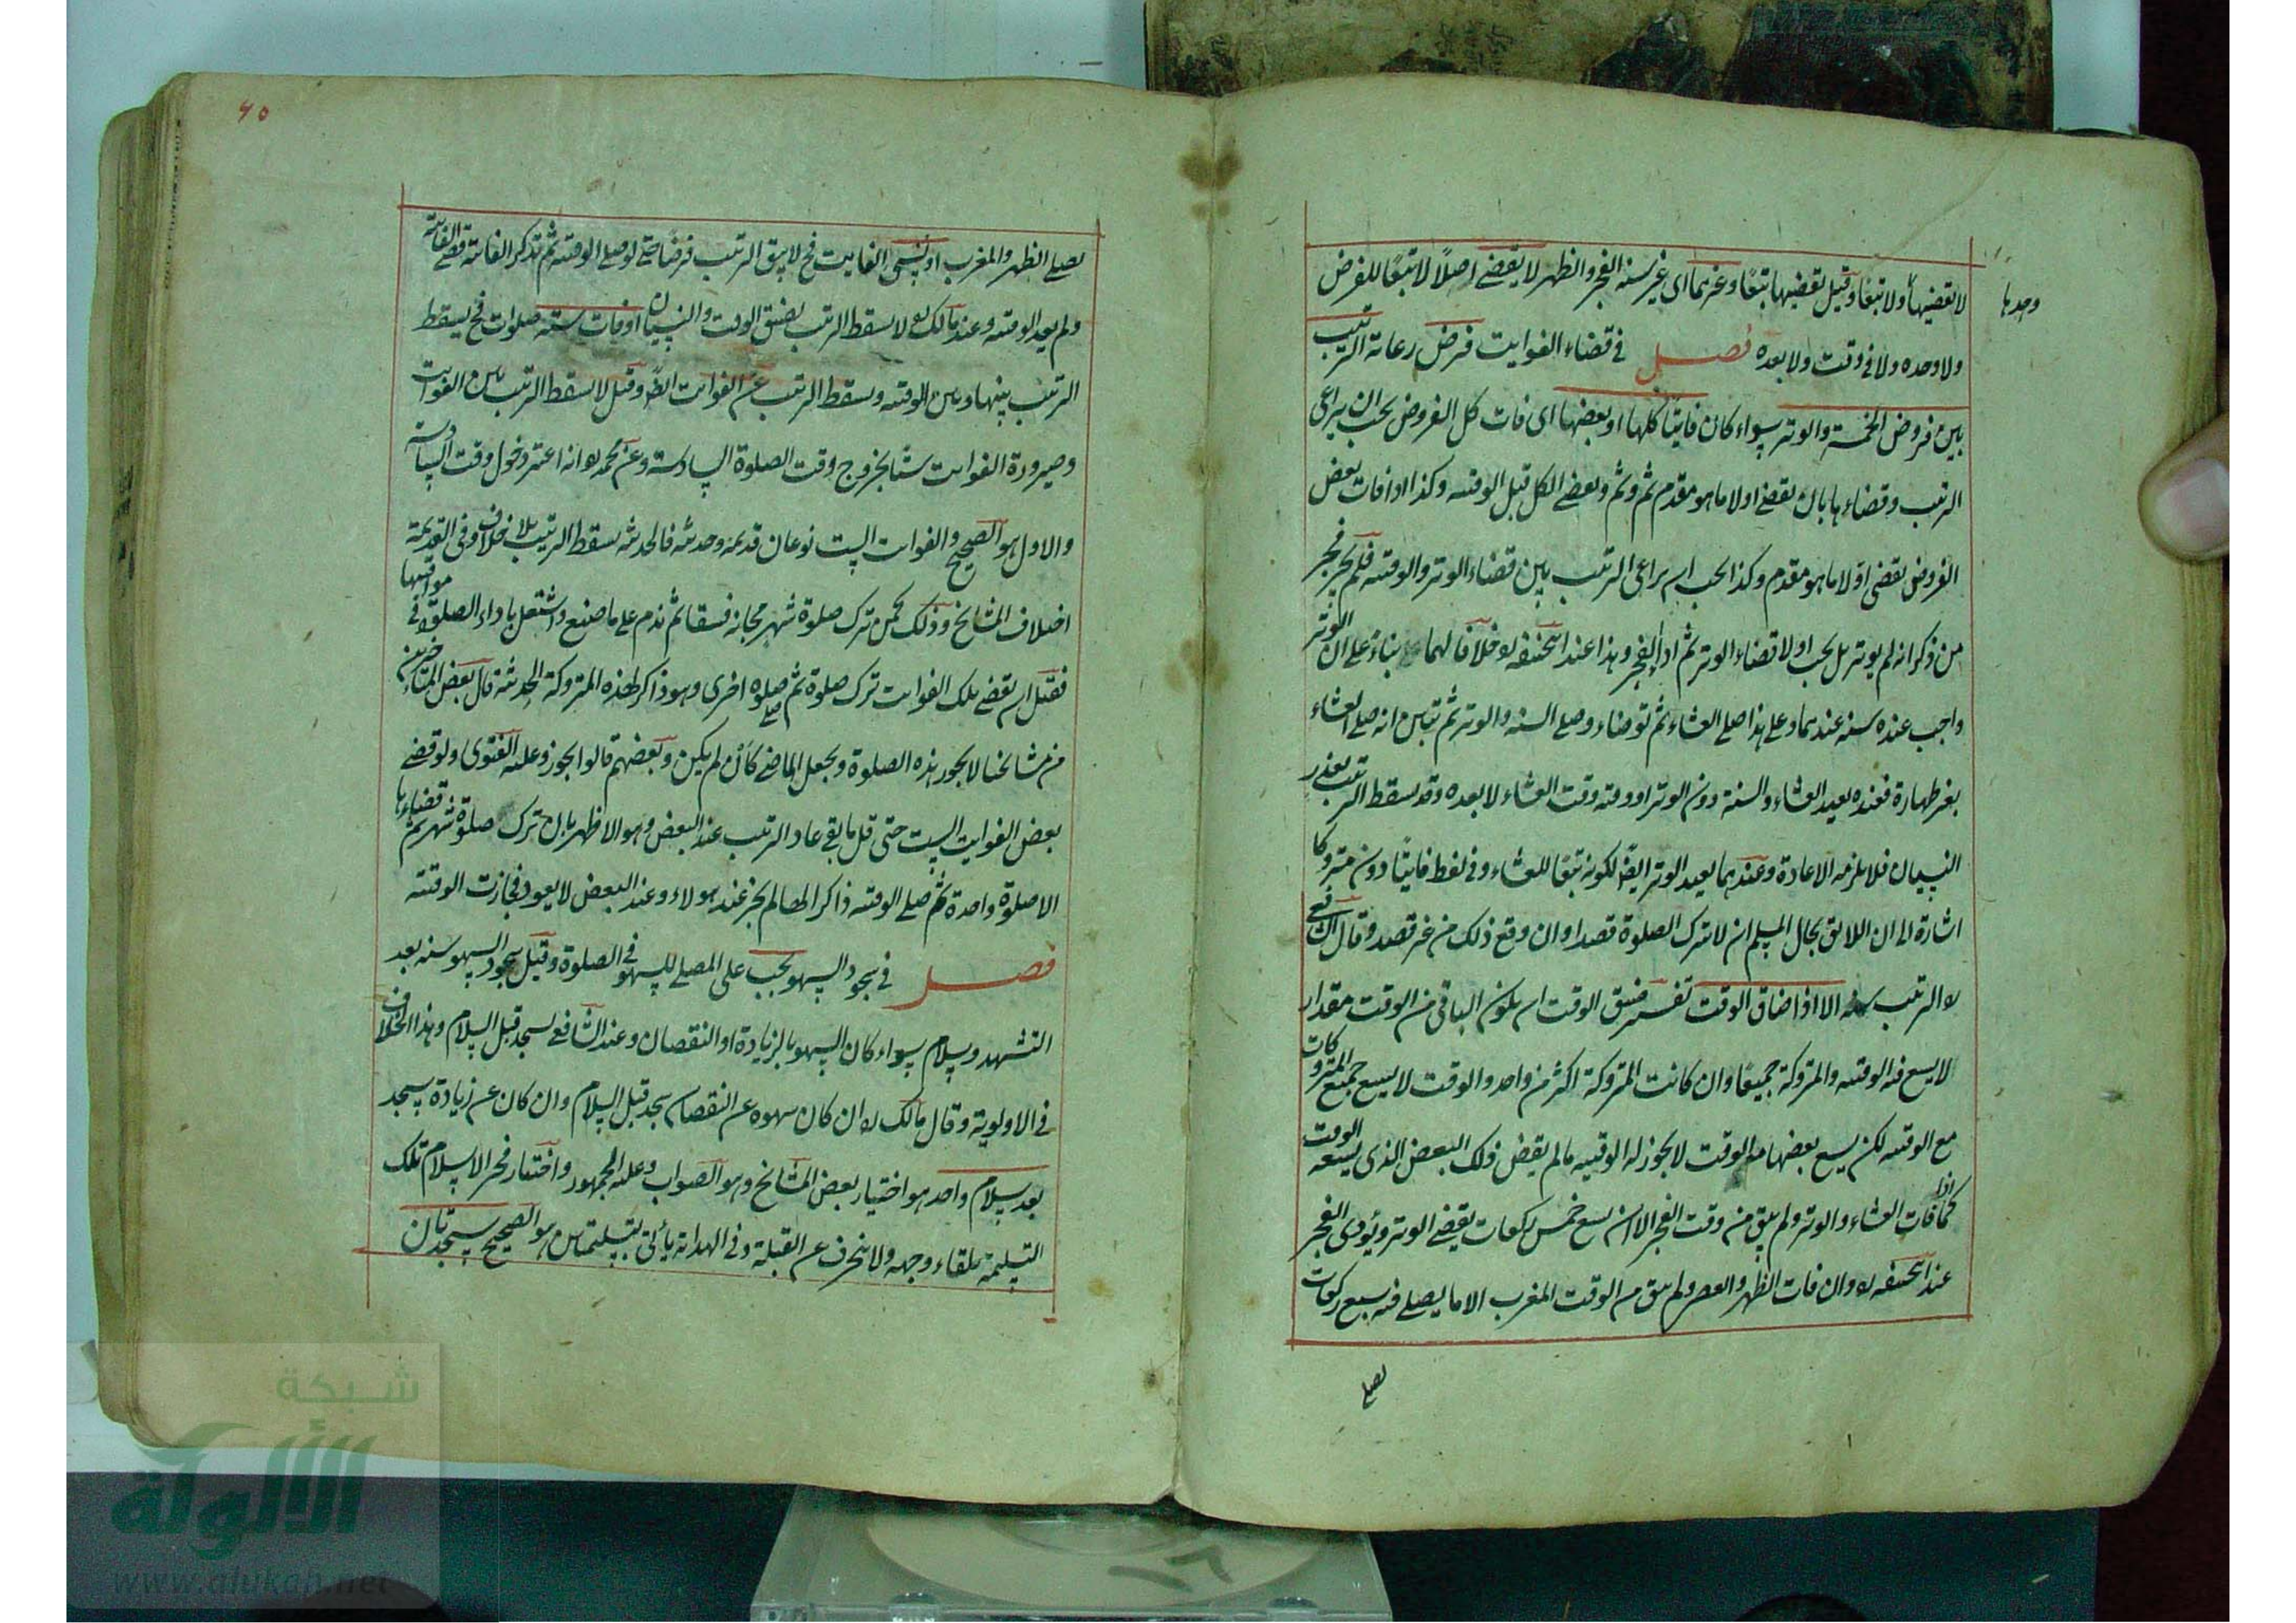 لا يقضيها ولا تبعًا وقيل يقضيها تبعًا وغيرهما اى غير سنة الفجر والظهر لا يقضى اصلًا لا تبعًا للفرض
وحدها
ولا وحده ولا فى وقت ولا بعده فصل فى قضاء الفوايت فرض رعاية الترتيب
بين فروض الخمسة والوتر سواء كان فايتًا كلها او بعضها اى فات كل الفروض يجب ان يراعى
الترتيب وقضاءها بان يقضى اولا ما هو مقدم ثم وثم ويقضى الكل قبل الوقتية وكذا اذا فات بعض
الفروض يقضى اولا ما هو مقدم وكذا يجب ان يراعى الترتيب بين قضاء الوتر والوقتية فلم يجز فجر
من ذكر انه لم يوتر بل يجب اولا قضاء الوتر ثم اداء الفجر وهذا عند ابيحنيفه ره خلافا لهما بناءً على ان الوتر
واجب عنده سنة عندهما وعلى هذا صلى العشاء ثم توضاء وصلى السنة والوتر ثم تبين انه صلى العشاء
بغير طهارة فعنده يعيد العشاء والسنة دون الوتر اووقته وقت العشاء لا بعده وقد سقط الترتيب بعذر
النسيان فلا يلزمه الاعادة وعندهما يعيد الوتر ايضًا لكونه تبعًا للعشاء وفى لفظ فايتًا دون متروكا
اشارة الى ان اللايق بحال المسلم ان لا يترك الصلوة قصدا وان وقع ذلك من غير قصد وقال الشافعى
ره الترتيب سنة الا اذا ضاق الوقت تفسير ضيق الوقت ان يكون الباقى من الوقت مقدار
لا يسع فيه الوقتية والمتروكة جميعًا وان كانت المتروكة اكثر من واحد والوقت لا يسع جميع المتروكات
مع الوقتية لكن يسع بعضها مع الوقت لا يجوز له الوقتية ما لم يقض ذلك البعض الذى يسعه الوقت
كما اذا فات العشاء والوتر ولم يبق من وقت الفجر الا ان يسع خمس ركعات يقضى الوتر ويؤدى الفجر
عند ابيحنيفه ره وان فات الظهر والعصر ولم يبق من الوقت المغرب الا ما يصلى فيه سبع ركعات
يصلى
٦٥
يصلى الظهر والمغرب او نسى الفايت فح لا يبق الترتيب فرضًا حتى لو صلى الوقتية ثم تذكر الفايتة قضى الفايتة
ولم يعد الوقتية وعند مالك ره لا يسقط الترتيب بضيق الوقت والنسيان او فات ستة صلوات فح يسقط
الترتيب بينها وبين الوقتية ويسقط الترتيب عن الفوايت ايضًا وقيل لا يسقط الترتيب بين الفوايت
وصيرورة الفوايت ستًا بخروج وقت الصلوة السادسة وعن محمد ره انه اعتبر دخول وقت السادسة
والاول هو الصحيح والفوايت الست نوعان قديمة وحديثة فالحديثة تسقط الترتيب بلا خلاف وفى القديمة
اختلاف المشايخ وذلك كمن ترك صلوة شهر مجانة فسقا ثم ندم على ما صنع واشتغل باداء الصلوة فى مواقيتها
فقبل ان يقضى تلك الفوايت ترك صلوة ثم صلى صلوة اخرى وهو ذاكر لهذه المتروكة الحديثة قال بعض المتاخرين
من مشايخنا لا يجوز هذه الصلوة ويجعل الماضى كأن لم يكن وبعضهم قالوا يجوز وعليه الفتوى ولو قضى
بعض الفوايت الست حتى قل ما بقى عاد الترتيب عند البعض وهو الاظهر بان ترك صلوة شهر ثم قضاءها
الا صلوة واحدة ثم صلى الوقتية ذاكرا لها لم يجز عند هولاء وعند البعض لا يعود فجازت الوقتية
فصل فى سجود السهو يجب على المصلى للسهو فى الصلوة وقيل سجود السهو سنة بعد
التشهد وسلام سواء كان السهو بالزيادة او النقصان وعند الشافعى يسجد قبل السلام وهذا الخلاف
فى الاولوية وقال مالك ره ان كان سهوه عن النقصان سجد قبل السلام وان كان عن زيادة يسجد
بعد سلام واحد هو اختيار بعض المشايخ وهو الصواب وعليه الجمهور واختيار فخر الاسلام تلك
التسليمة تلقاء وجهه ولا ينحرف عن القبلة وفى الهداية يأتى بتسليمتين هو الصحيح سجدتان
شبكة
الألوكة
www.alukah.net